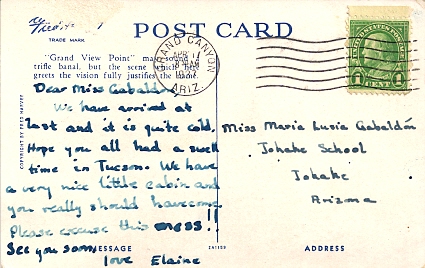 POST CARD
TRADE MARK
"Grand View Point" may sound a
trifle banal, but the scene which
greets the vision fully justifies the name.
GRAND CANYON
APR 11
ARIZ.
1 CENT 1
COPYRIGHT BY FRED HARVEY
Dear Miss Gabaldón
We have arrived at
last and it is quite cold.
Hope you all had a swell
time in Tucson. We have
a very nice little cabin and
you really should have come.
Please excuse this mess!!
See you soon,
love Elaine
MESSAGE
Miss Maria Lusia Gabaldón
Jokake School
Jokake
Arizona
ADDRESS